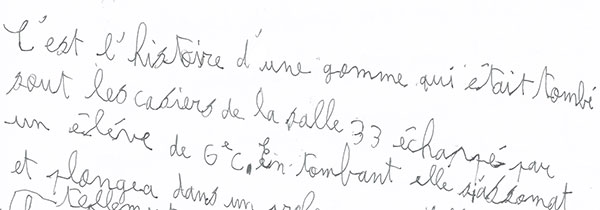 C'est l'histoire d'une gomme qui était tombé
sout les casiers de la salle 33 échappé par
un éléve de 6e C. En tombant elle s'assomat
et plongea dans un
tellement